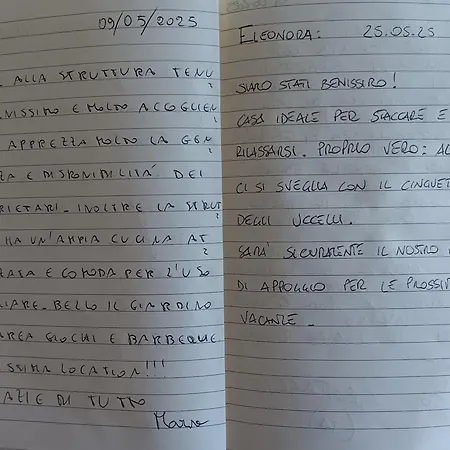 09/05/2025
ALLA STRUTTURA TENU
NISSIMO E MOLTO ACCOGLIEN
APPREZZA MOLTO LA GEN
ZA E DISPONIBILITÀ DEI
RIETARI. INOLTRE LA STRUT
HA UN'AMPIA CUCINA AT
ZATA E COMODA PER L'USO
LIARE. BELLO IL GIARDINO
AREA GIOCHI E BARBEQUE
SSIMA LOCATION!!!
AZIE DI TUTTO
ELEONORA: 25.05.25
SIAMO STATI BENISSIMO!
CASA IDEALE PER STACCARE E
RILASSARSI. PROPRIO VERO: AL
CI SI SVEGLIA CON IL CINGUET
DEGLI UCCELLI.
SARÀ SICURAMENTE IL NOSTRO
DI APPOGGIO PER LE PROSSIM
VACANZE.